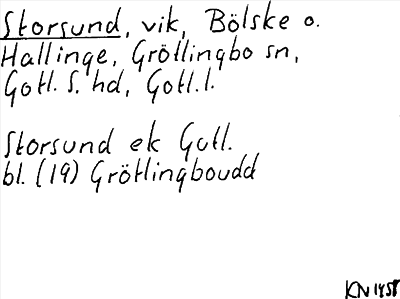 Storsund, vik, Bölske o.
Hallinge, Grötlingbo sn,
Gotl. S. hd, Gotl. l.
Storsund ek Gotl.
bl. (19) Grötlingboudd
KN 1958